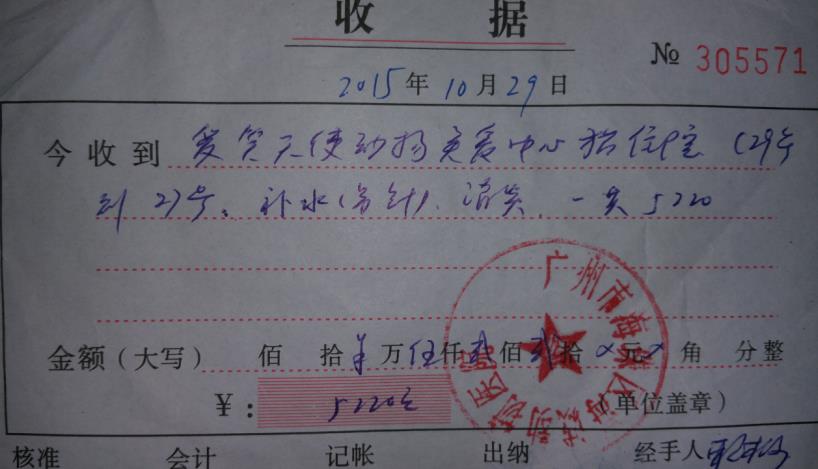 收 据
№ 305571
2015年10月29日
今收到 爱 天使动物 爱中心 住院 (29号
到27号、补水(另针)、消炎、一共5220
金额(大写) 佰 拾 万伍仟贰佰贰拾 元 角 分整
¥: 5220元
(单位盖章)
广州市海珠区 动 医院
核准 会计 记帐 出纳 经手人